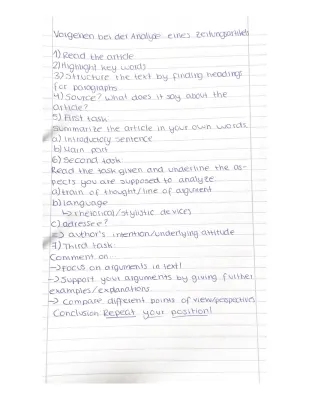 Vorgehen bei der Analyse eines Zeitungsartikels
1) Read the article
2) Highlight key words
3) Structure the text by finding headings
for paragraphs
4) Source? What does it say about the
article?
5) First task
summarize the article in your own words
a) Introductory sentence
b) Main part
6) Second task:
Read the task given and underline the as-
pects you are supposed to analyze.
a) train of thought/line of argument
b) language
↳ rhetorical/stylistic devices
c) adressee?
=> author's intention/underlying attitude
7) Third task:
Comment on...
-> Focus on arguments in text!
-> Support your arguments by giving further
examples/explanations
-> Compare different points of view/perspectives
Conclusion: Repeat your position!